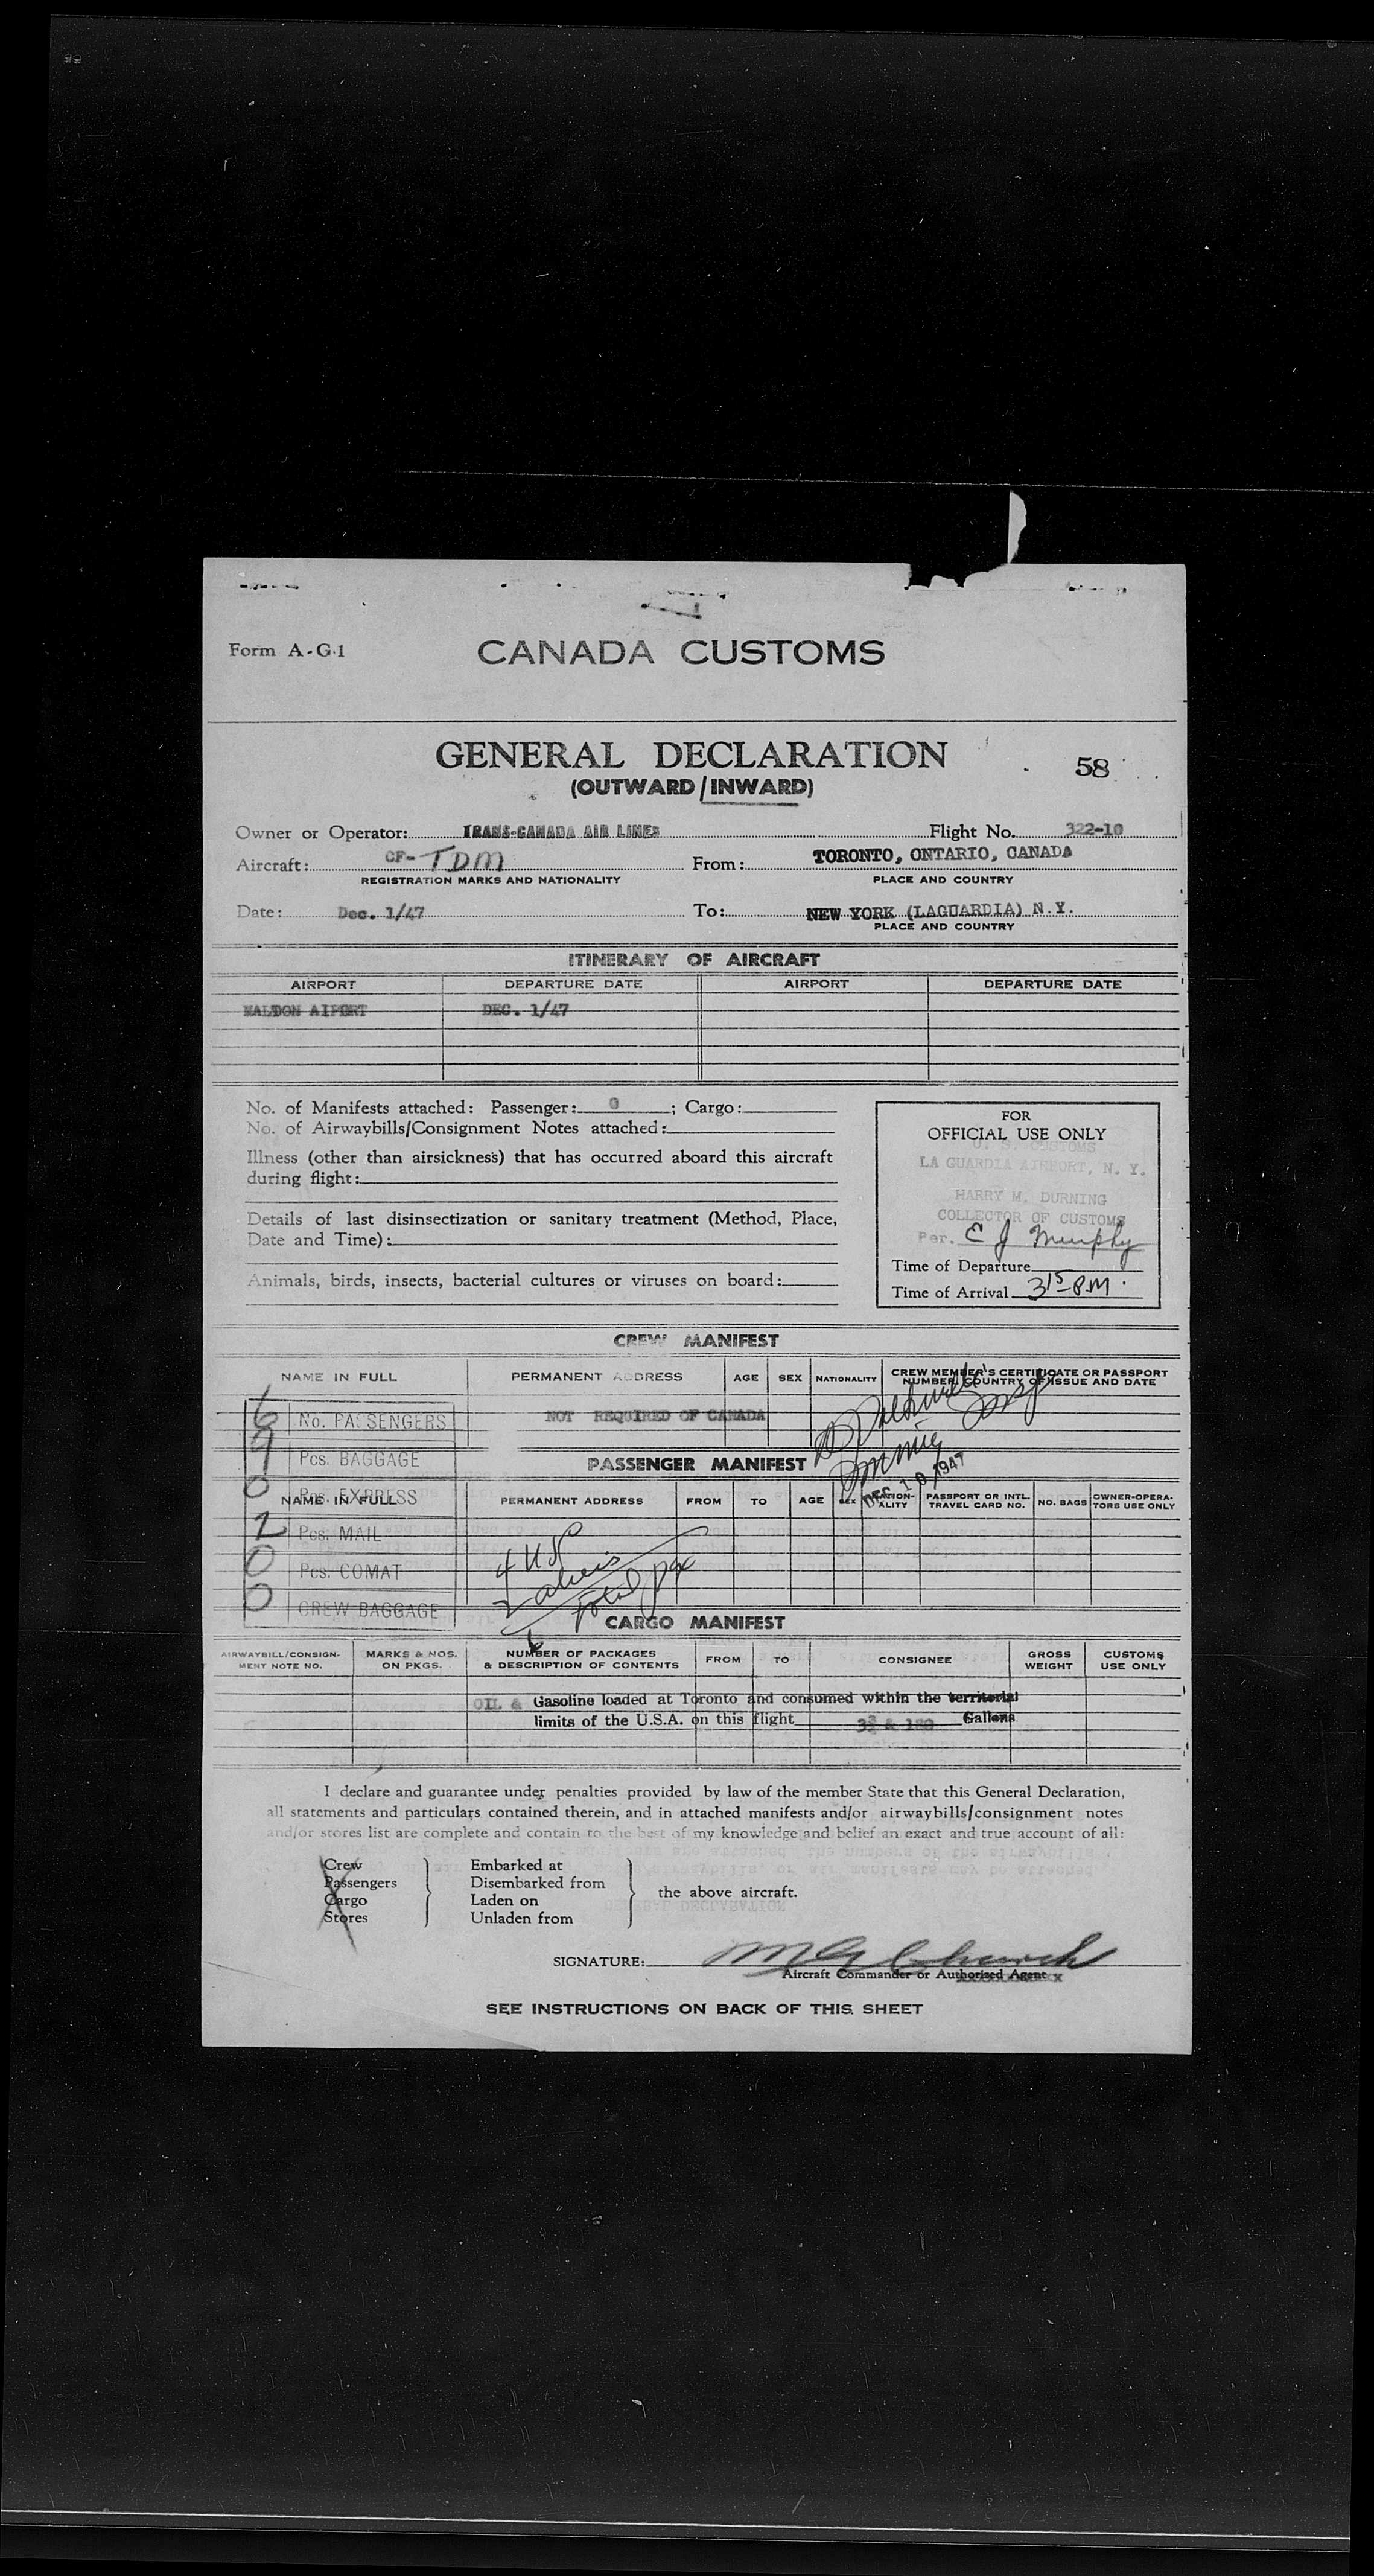 Form A-G-1
CANADA CUSTOMS
GENERAL DECLARATION
58
(OUTWARD/INWARD)
Owner or Operator: TRANS-CANADA AIR LINES Flight No. 322-10
Aircraft: CF-TDM From: TORONTO, ONTARIO, CANADA
REGISTRATION MARKS AND NATIONALITY PLACE AND COUNTRY
Date: Dec. 1/47 To: NEW YORK (LAGUARDIA) N.Y.
PLACE AND COUNTRY
ITINERARY OF AIRCRAFT
AIRPORT DEPARTURE DATE AIRPORT DEPARTURE DATE
MALTON AIPORT DEC. 1/47
No. of Manifests attached: Passenger: 0 ; Cargo:
No. of Airwaybills/Consignment Notes attached:
Illness (other than airsickness) that has occurred aboard this aircraft
during flight:
Details of last disinsectization or sanitary treatment (Method, Place,
Date and Time):
Animals, birds, insects, bacterial cultures or viruses on board:
FOR
OFFICIAL USE ONLY
U. S. CUSTOMS
LA GUARDIA AIRPORT, N. Y.
HARRY M. DURNING
COLLECTOR OF CUSTOMS
Per. E J Murphy
Time of Departure
Time of Arrival 3 15 P.M.
CREW MANIFEST
NAME IN FULL PERMANENT ADDRESS AGE SEX NATIONALITY CREW MEMBER'S CERTIFICATE OR PASSPORT
NUMBER, COUNTRY OF ISSUE AND DATE
6 No. PASSENGERS NOT REQUIRED OF CANADA
9 Pcs. BAGGAGE
PASSENGER MANIFEST
DEC 1 0 1947
0 Pcs. EXPRESS
NAME IN FULL PERMANENT ADDRESS FROM TO AGE SEX NATION-
ALITY PASSPORT OR INTL.
TRAVEL CARD NO. NO. BAGS OWNER-OPERA-
TORS USE ONLY
2 Pcs. MAIL
0 Pcs. COMAT
0 CREW BAGGAGE
4 US
2 aliens
6 total pax
CARGO MANIFEST
AIRWAYBILL/CONSIGN-
MENT NOTE NO. MARKS & NOS.
ON PKGS. NUMBER OF PACKAGES
& DESCRIPTION OF CONTENTS FROM TO CONSIGNEE GROSS
WEIGHT CUSTOMS
USE ONLY
OIL & Gasoline loaded at Toronto and consumed within the territorial
limits of the U.S.A. on this flight & 180 Gallons
I declare and guarantee under penalties provided by law of the member State that this General Declaration,
all statements and particulars contained therein, and in attached manifests and/or airwaybills/consignment notes
and/or stores list are complete and contain to the best of my knowledge and belief an exact and true account of all:
Crew Embarked at
Passengers Disembarked from
Cargo Laden on
Stores Unladen from
the above aircraft.
SIGNATURE:
Aircraft Commander or Authorised Agent
SEE INSTRUCTIONS ON BACK OF THIS SHEET